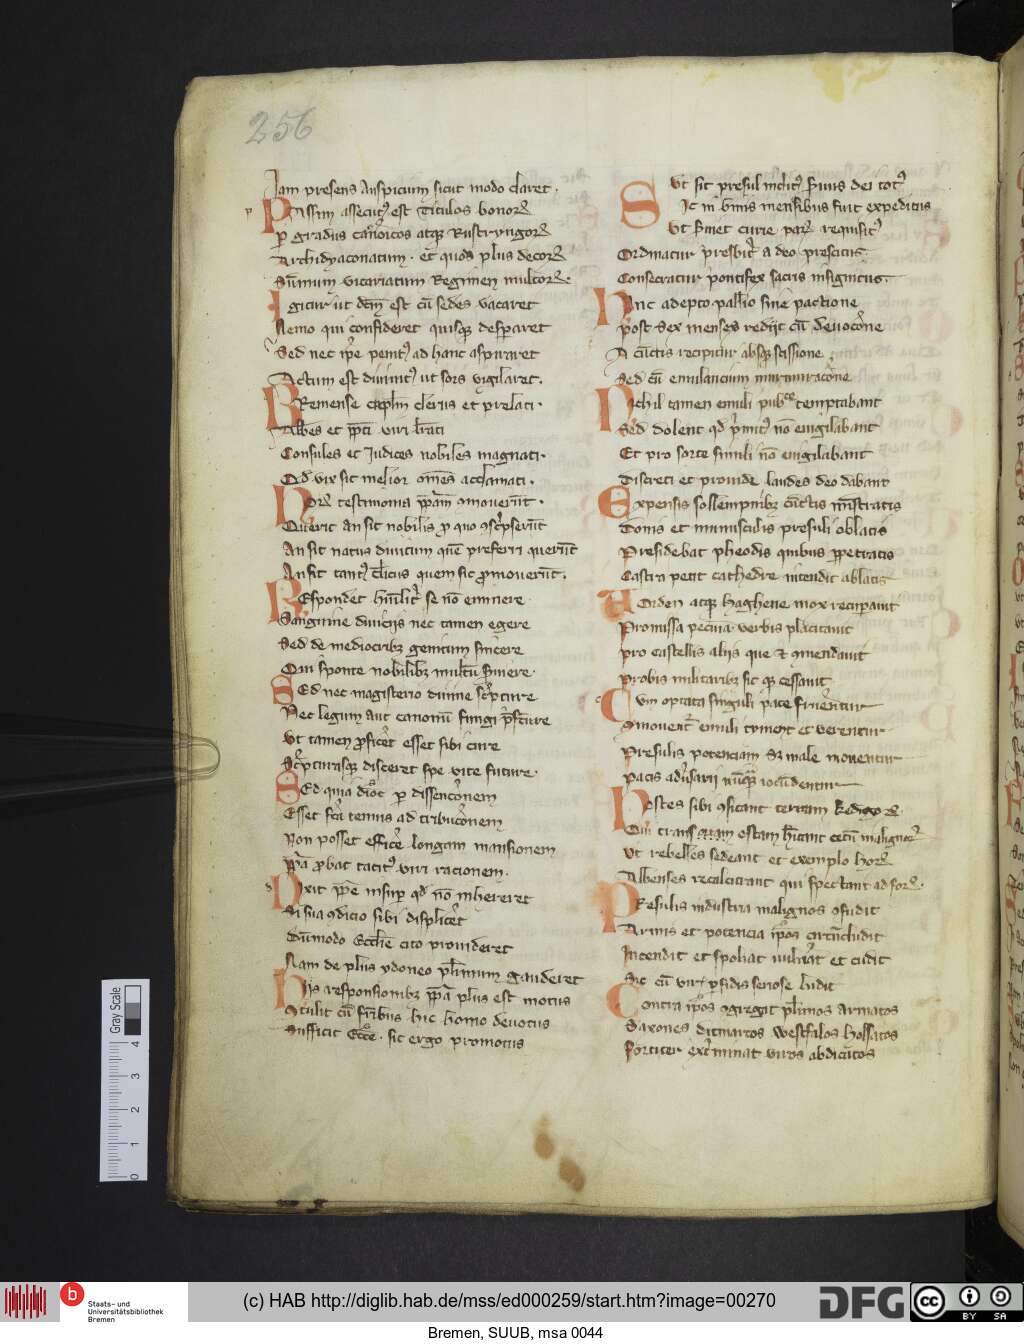 256
Jam presens Auspicium sicut modo claret.
Passim assecut9 est Titulos bonor
p gradus canoicos atqꝫ Rustryngor
Archidyaconatum. et quod plus decor
Sumum vicariatum Regimen multor.
Igitur ut dcm est cu sedes vacaret
Nemo qui confideret quisqꝫ desparet
Sed nec ipe penit9 ad hanc aspiraret
Actum est divinit9 ut sors vigilaret.
Bremense caplm clerus et prelati.
Abbes et ppti viri lrati
Consules et Judices nobiles magnati.
Qd vix sit melior omes acclamati.
Hor testimonia ppam 9moverut.
Querit an sit nobilis p quo 9scpserut
An sit natus divitum que preferri querut
An sit tant9 clicus quem sic pmoverut.
Respondet humlit se no eminere
Sanguine divicijs nec tamen egere
Sed de mediocribꝫ genitum sincere
Qui sponte nobilibꝫ multu Svivere.
Sed nec magisterio divine scpture
Nec legum aut canonu fungi pfcture
Ut tamen pficet esset sibi cure
Scpturasqꝫ disceret spe vite future.
Sed quia dioc p dissenconem
Esset fca tenuis ad tribuconem
Non posset effice longam mansionem
ppa pbat tacit9 viri racionem.
Dixit ppe insup qd no inhereret
Si sua 9dicio sibi displicet
Dumodo Ecclie cito provideret
Nam de plus ydoneo plimum gauderet
Hijs responsionibꝫ ppa plus est motus
9tulit cu fribus hic homo devotus
Sufficit Ecce. sic ergo promotus
Ut sit presul inclit9 Svus dei tot9
Sic in binis mensibus fuit expeditus
Ut Smet curie par requisit9
Ordinatur presbit a deo prescitus.
Consecratur pontifex sacris insignitus.
Hinc adepto pallio sine pactione
post sex menses redijt cu devocone
A cunctis recipitur absqꝫ scissione
Sed cu emulancium murmuracone
Nichil tamen emuli pub temptabant
Sed dolent qd pmit9 no evigilabant
Et pro sorte simili no evigilabant
Discreti et provide laudes deo dabant
Expensis sollempnibꝫ cunctis mistratis
Donis et munusculis presuli oblatis
Presidebat pheodis quibus ppetratis
Castra petit cathedre intendit ablatis
Vorden atqꝫ haghene mox recuperavit
Promissa pecunia verbis placitavit
pro castellis alijs que 9mendavit
Probis militaribꝫ sic qꝫ cessavit
Cum optata singuli pace fruerentur
9movent emuli tyment et verentur
Presulis potenciam Sꝫ male moventur
pacis adversarij nuqꝫ iocundentur
Hostes sibi 9ficiant terram kedigo
Qui trans aquam estam hitant cetu malignor
Ut rebelles sedeant et exemplo hor
Albenses recalcitrant qui spectant ad for.
Presulis industria malignos 9fudit
Armis et potencia ipos circucludit
Incendit et spoliat vulnat et cudit
Sic cu viris pfidis seriose ludit
Contra ipos 9gregat plimos armatos
Saxones ditmarcos westfalos holsatos
Fortiter extminat viros abdicatos
0 1 2 3 4
Gray Scale
Staats- und
Universitätsbibliothek
Bremen
(c) HAB http://diglib.hab.de/mss/ed000259/start.htm?image=00270
DFG
CC BY SA
Bremen, SUUB, msa 0044